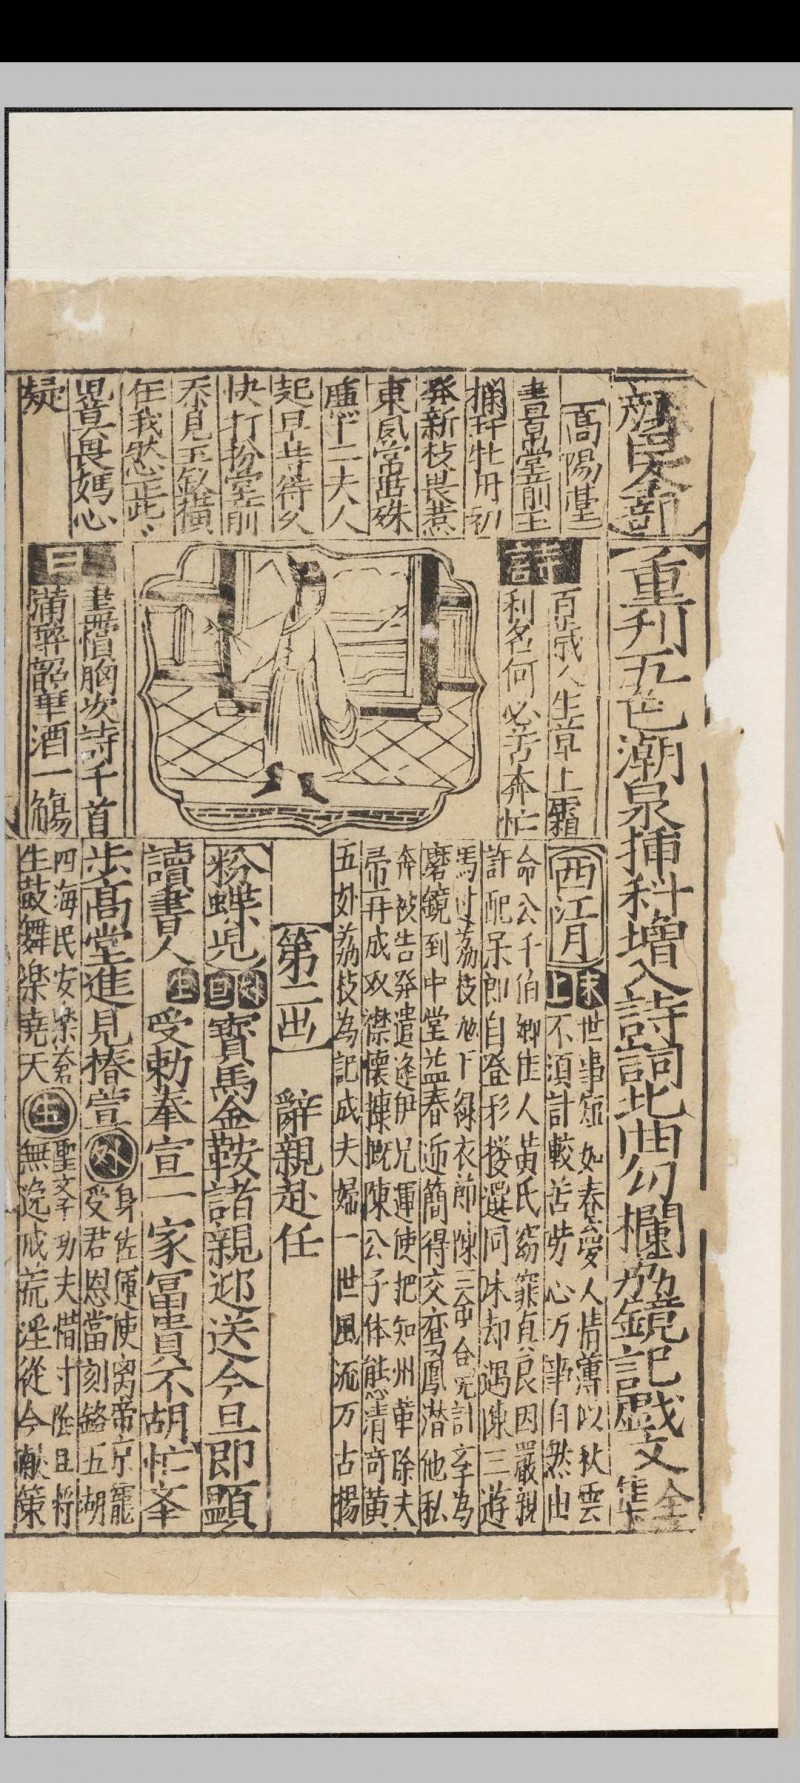 重刋五色潮泉揷科增入詩詞北曲勾欄荔鏡記戱文全集
顔臣全部
高陽堂
書房堂前玉
欄杆牡丹初
發新枝畏惹
東風常
二夫人
起早侍待久
快打扮堂前
任我
畏媽心
疑
詩
百歲人生草上霜
利名何必苦奔忙
曰
盡攄胸次詩千首
滿醉韶華酒一觴
西江月
末上
世事短如春夢人情薄似秋雲
不須計較苦勞心万事自然由
命公千伯卿佳人黃氏窈窕貞良因嚴親
許配呆郎自登彩樓選同床却遇陳三遊
馬过荔枝拋下綠衣郎陳三命合
磨鏡到中堂益春逓簡得交鸞鳳潜他私
奔被告發遣逢伊兄運使把知州革除夫
帚再成双襟懷慷慨陳公子体態清奇黃
五奻荔枝為記成夫婦一世風流万古揚
第二出 辭親赴任
粉蝶兒 外旦 寳馬金鞍諸親迎送今旦即顯
讀書人 生 受勅奉宣一家富貴不胡忙峯
步高堂進見椿萱 外 身佐運使离帝京寵
受君恩當刻銘五湖
四海民安樂
生鼓舞樂堯天 生 聖文子功夫惜寸陰且将
無逸戒荒淫從今献策